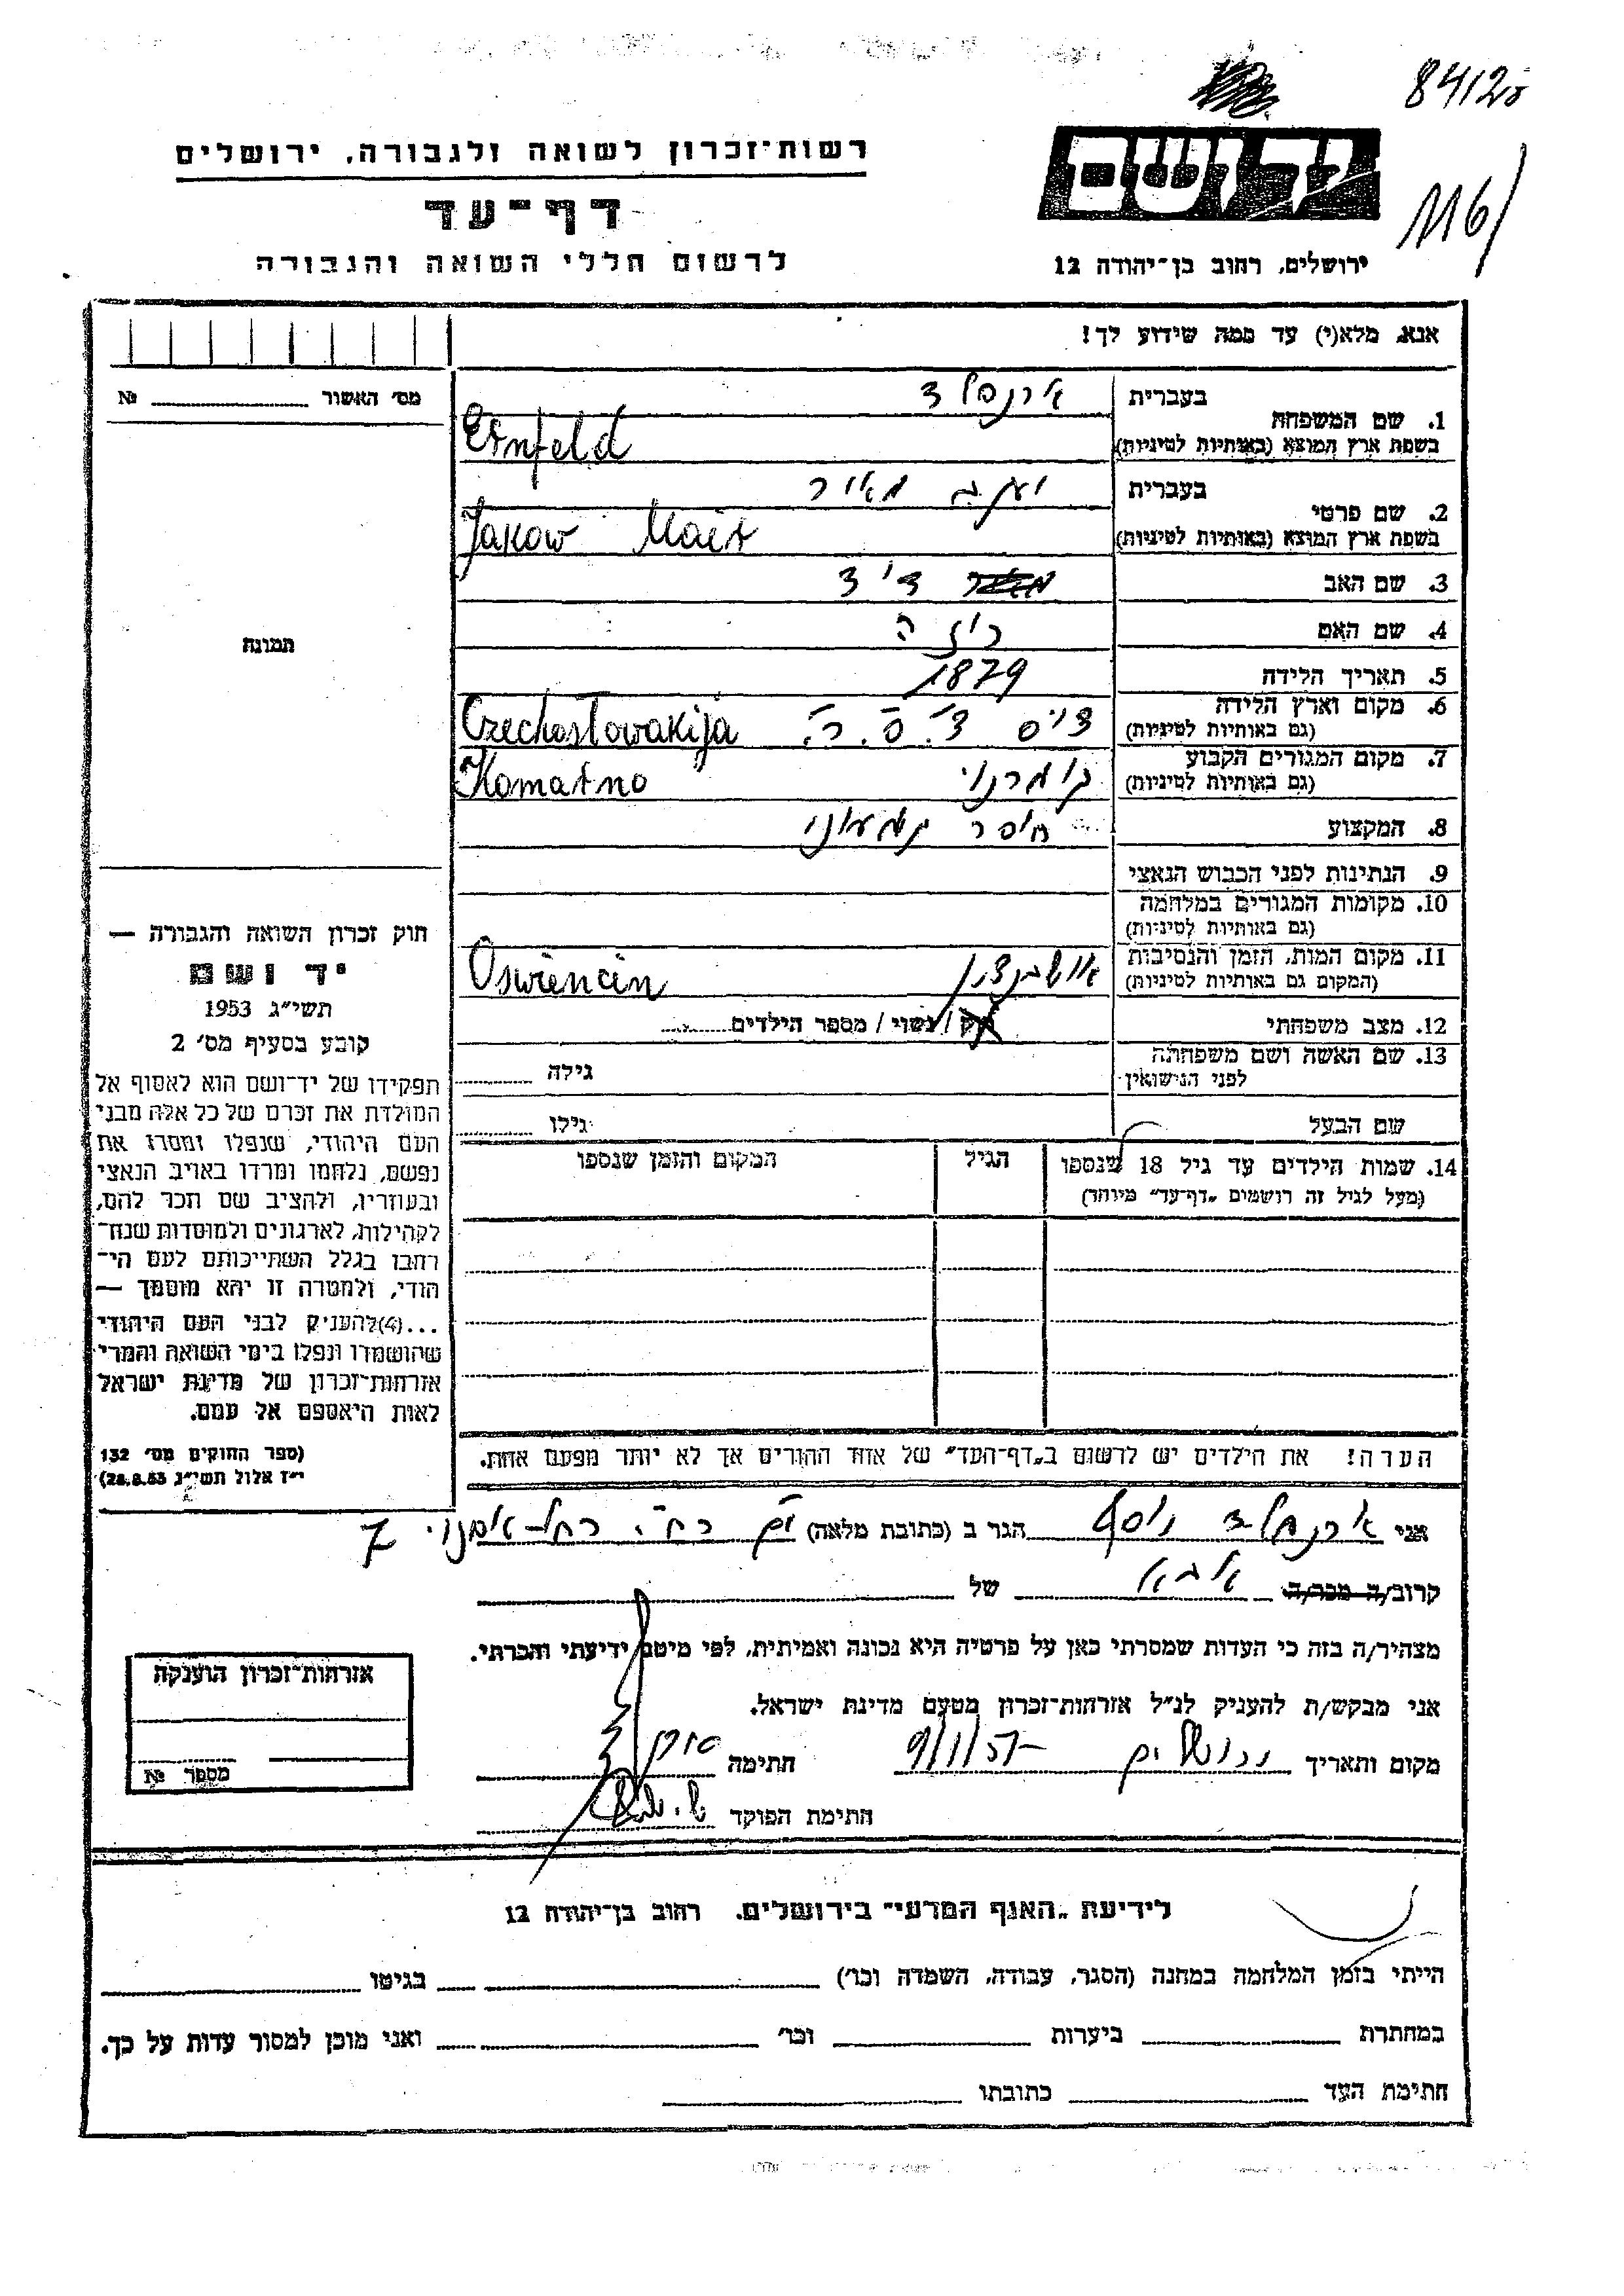 84120
116/
רשות־זכרון לשואה ולגבורה, ירושלים
יד ושם
דף־עד
לרשום חללי השואה והגבורה
ירושלים, רחוב בן־יהודה 12
אנא, מלא(י) עד כמה שידוע לך!
מס׳ האשור № 
1. שם המשפחה
בעברית
בשפת ארץ המוצא (באותיות לטיניות)
Ernfeld
2. שם פרטי
בעברית יעקב מאיר
בשפת ארץ המוצא (באותיות לטיניות)
Jakow Mair
3. שם האב
4. שם האם רוזה
5. תאריך הלידה 1879
6. מקום וארץ הלידה
(גם באותיות לטיניות)
צ. ס. ר. Czechoslovakija
7. מקום המגורים הקבוע
(גם באותיות לטיניות)
קומרנו Komarno
8. המקצוע סוחר קמעוני
9. הנתינות לפני הכבוש הנאצי
10. מקומות המגורים במלחמה
(גם באותיות לטיניות)
11. מקום המות, הזמן והנסיבות
(המקום גם באותיות לטיניות)
Oswiencin
12. מצב משפחתי רוק / נשוי / מספר הילדים
13. שם האשה ושם משפחתה
לפני הנישואין
גילה
שם הבעל גילו
14. שמות הילדים עד גיל 18 שנספו
(מעל לגיל זה רושמים „דף־עד" מיוחד)
הגיל
המקום והזמן שנספו
הערה! את הילדים יש לרשום ב„דף־העד" של אחד ההורים אך לא יותר מפעם אחת.
תמונה
חוק זכרון השואה והגבורה —
יד ושם
תשי״ג 1953
קובע בסעיף מס׳ 2
תפקידו של יד־ושם הוא לאסוף אל
המולדת את זכרם של כל אלה מבני
העם היהודי, שנפלו ומסרו את
נפשם, נלחמו ומרדו באויב הנאצי
ובעוזריו, ולהציב שם וזכר להם,
לקהילות, לארגונים ולמוסדות שנח־
רבו בגלל השתייכותם לעם הי־
הודי, ולמטרה זו יהא מוסמך —
...(4)להעניק לבני העם היהודי
שהושמדו ונפלו בימי השואה והמרי
אזרחות־זכרון של מדינת ישראל
לאות היאספם אל עמם.
(ספר החוקים מס׳ 132
י״ז אלול תשי״ג 28.8.53)
אני ארנפלד יוסף הגר ב (כתובת מלאה) 7
קרוב/ה מכר/ה אבא של
מצהיר/ה בזה כי העדות שמסרתי כאן על פרטיה היא נכונה ואמיתית, לפי מיטב ידיעתי והכרתי.
אני מבקש/ת להעניק לנ״ל אזרחות־זכרון מטעם מדינת ישראל.
מקום ותאריך ירושלים חתימה
חתימת הפוקד
אזרחות־זכרון הוענקה
מספר №
לידיעת „האגף המדעי" בירושלים, רחוב בן־יהודה 12
הייתי בזמן המלחמה במחנה (הסגר, עבודה, השמדה וכו׳) בגיטו
במחתרת ביערות וכו׳ ואני מוכן למסור עדות על כך.
חתימת העד כתובתו